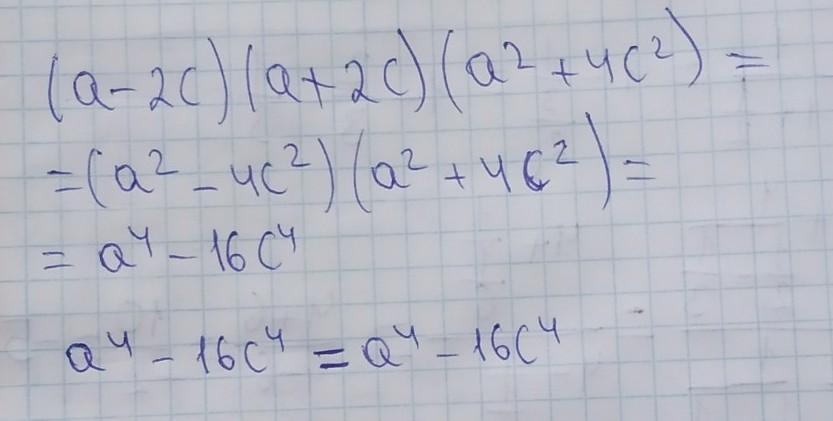 (a-2c)(a+2c)(a²+4c²)=
=(a²-4c²)(a²+4c²)=
= a⁴-16c⁴
a⁴-16c⁴=a⁴-16c⁴